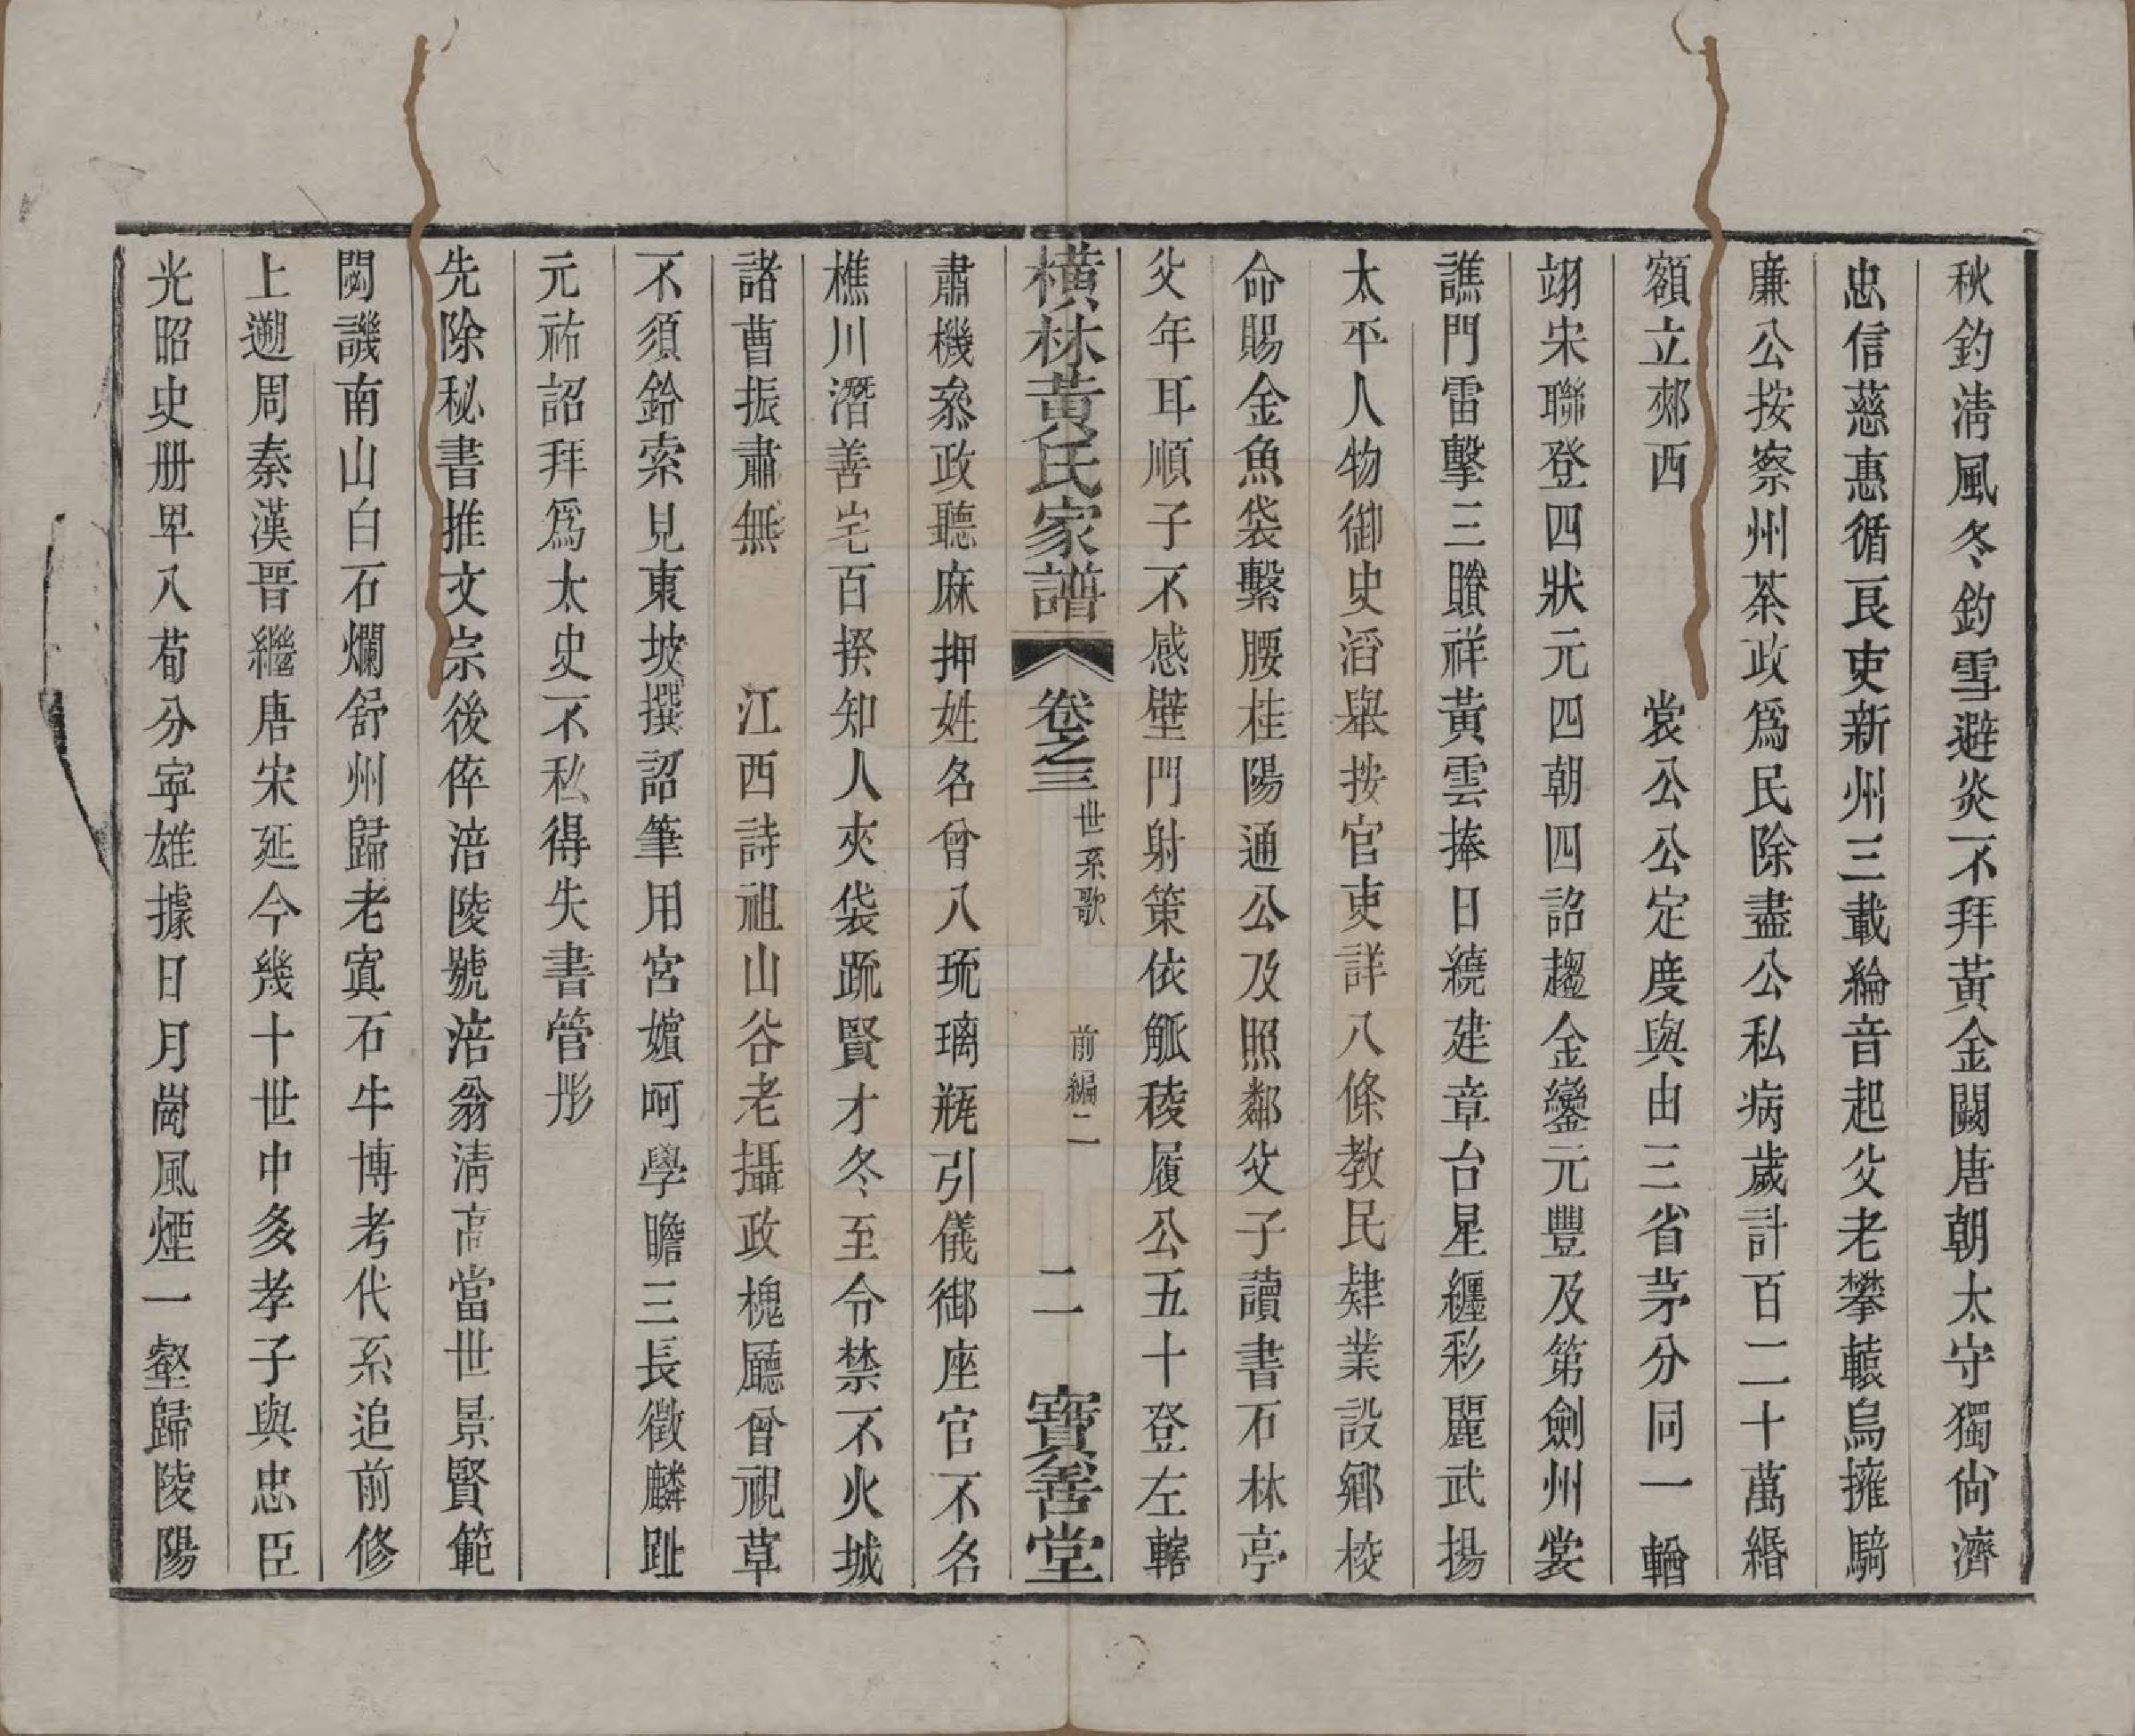 秋釣清風冬釣雪避炎不拜黃金闕唐朝太守獨尙濟
忠信慈惠循良吏新州三載綸音起父老攀轅烏擁騎
廉公按察州茶政爲民除盡公私病歲計百二十萬緡
額立郟西 裳公公定度與由三省茅分同一輶
翊宋聯登四狀元四朝四詔趨金鑾元豐及第劍州裳
譙門雷擊三賸祥黃雲捧日繞建章台星纏彩麗武揚
太平人物御史滔舉按官吏詳八條教民肄業設鄉校
命賜金魚袋繫腰桂陽通公及照鄰父子讀書石林亭
父年耳順子不感壁門射策依觚稜履公五十登左轄
橫林黃氏家譜 卷之三 世系歌 前編二 二 寶善堂
肅機叅政聽麻押姓名曾入琉璃瓶引儀御座官不名
樵川潛善宅百揆知人夾袋疏賢才冬至令禁不火城
諸曹振肅無 江西詩祖山谷老攝政槐廳曾視草
不須鈴索見東坡撰詔筆用宮嬪呵學瞻三長徵麟趾
元祐詔拜爲太史不私得失書管彤
先除秘書推文宗後倅涪陵號涪翁淸高當世景賢範
閟譏南山白石爛舒州歸老寘石牛博考代系追前修
上遡周秦漢晉繼唐宋延今幾十世中多孝子與忠臣
光昭史册卑八荀分寜雄據日月崗風煙一壑歸陵陽